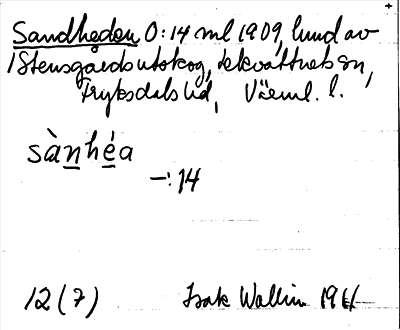 Sandheden 0:14 ml 1909, lund av
1 Stensgårds utskog, Lekvattnets sn,
Fryksdals hd, Värml. l.
sànhéa
—:14
12 (7) Isak Wallin 1911